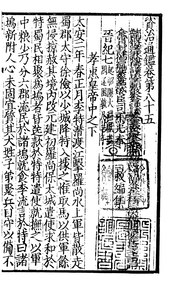 資治通鑑卷第八十五
晉紀七
孝惠皇帝中之下
太安二年春正月李特潛渡江擊羅尚水上軍皆散走
蜀郡太守徐儉以少城降特入據之惟取馬以供軍餘
無侵掠赦其境內改元建初羅尚保太城遣使求和於
特蜀民相聚為塢者皆送款於特特遣使就撫之以軍
中糧少乃分六郡流民於諸塢就食李流言於特曰諸
塢新附人心未固宜質其大姓子弟聚兵自守以備不